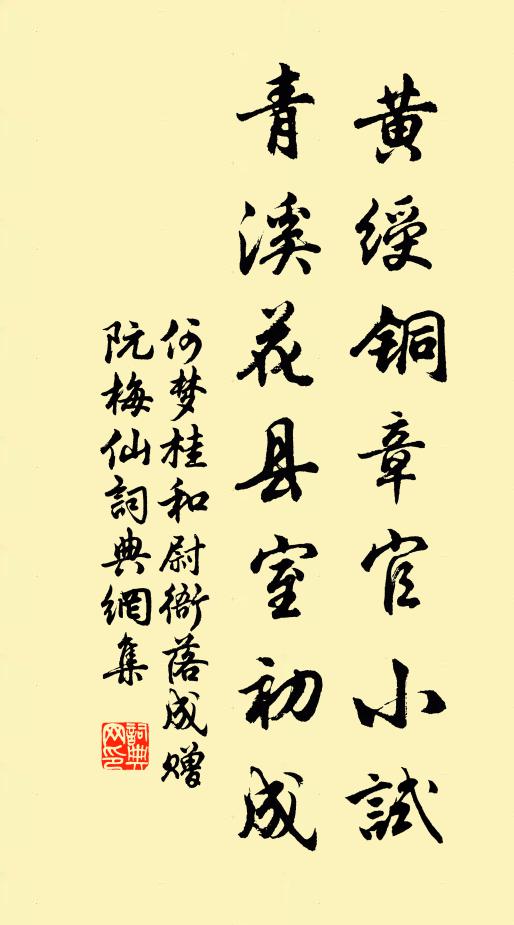 黄綬銅章官小試
青溪花县室初成
何梦桂和尉衙落成赠
阮梅仙詞典網集
詞典網印